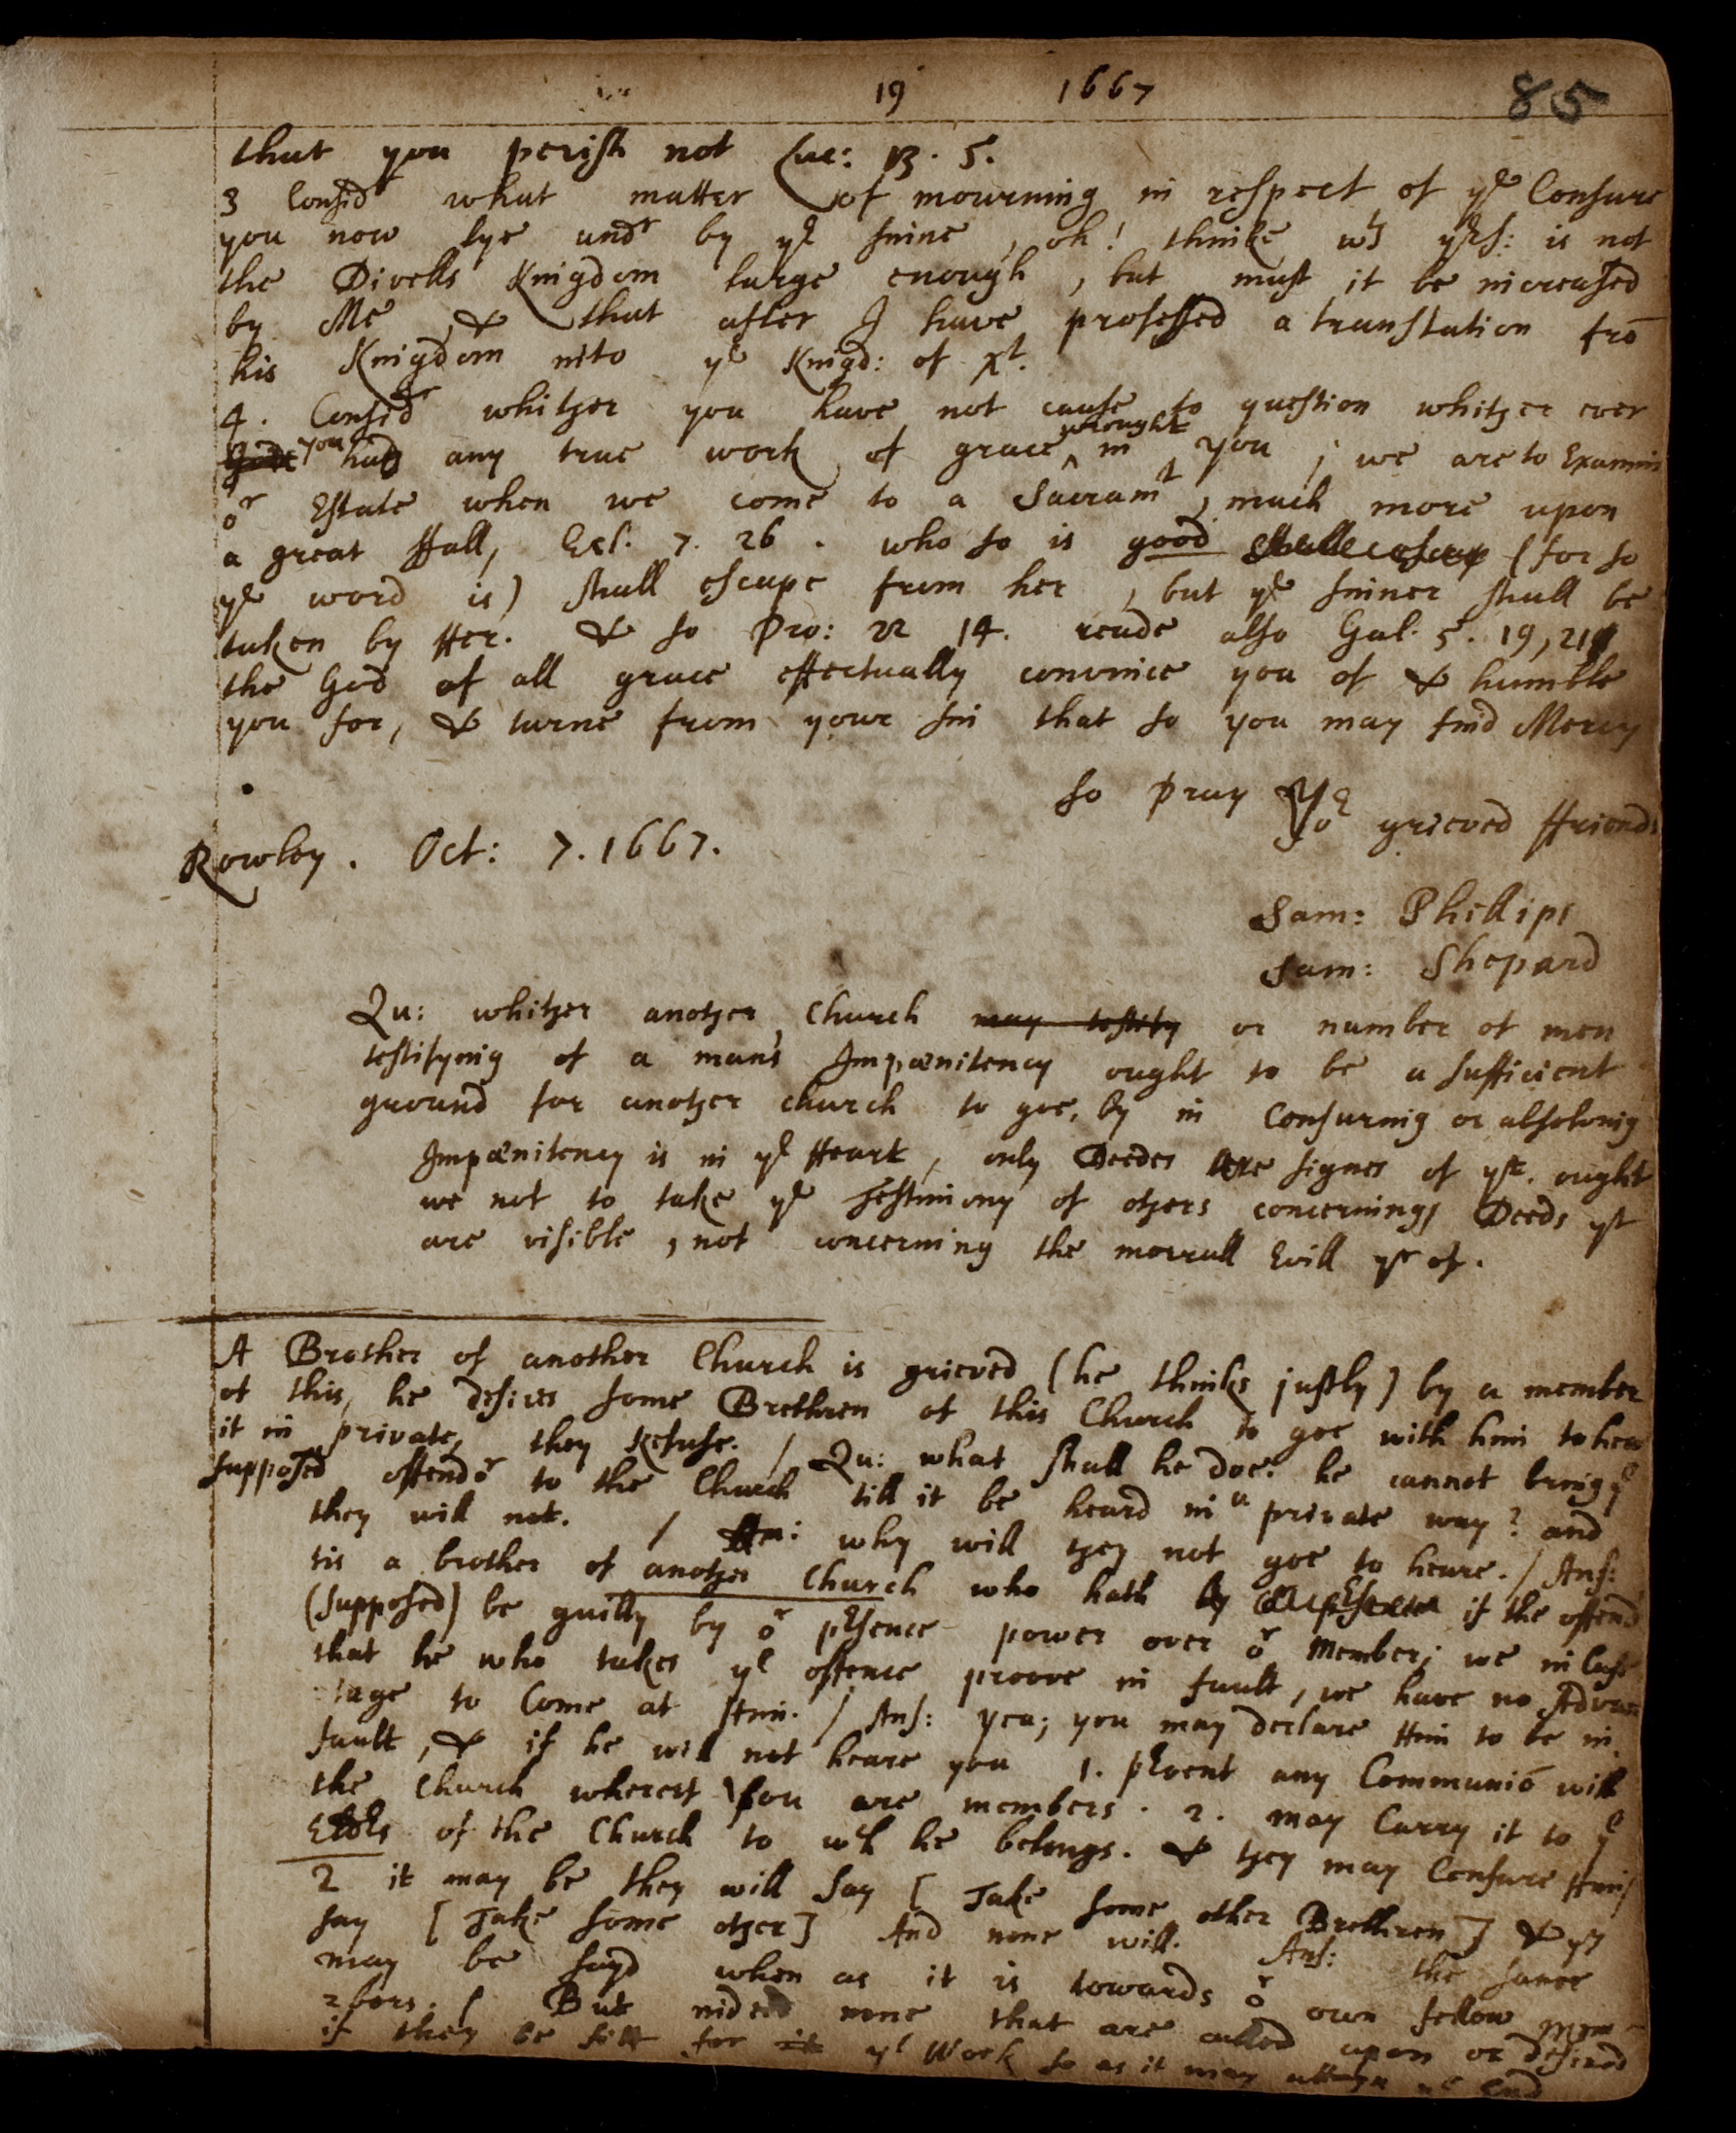 19 1667 85
that you perish not Luc: 13. 5.
3 Consid^r what matter of mourning in respect of y^e Censure
you now lye und^r by y^e sinne, oh! thinke w^t y^rs: is not
the Divells Kingdom large enough, but must it be increased
by Me, & that after I have professed a translation frō
his Kingdom into y^e Kingd: of X^t.
4. Consid^r whither you have not cause to question whither ever
you had any true work of grace wrought in you; we are to Examin
o^r Estate when we come to a Sacram^t, much more upon
a great ffall, Eccl. 7. 26. who so is good (for so
y^e word is) shall escape from her, but y^e sinner shall be
taken by Her. & so Pro: 22 14. reade also Gal. 5. 19, 21
the God of all grace effectually convince you of & humble
you for, & turne from your sin that so you may find Mercy
so Pray
Yo^r grieved ffriends
Rowley. Oct: 7. 1667.
Sam: Phillips
Sam: Shepard
Qu: whither another Church may testify or number of men
testifying of a man's Impœnitency ought to be a sufficient
ground for another church to goe, by in Censuring or absolving
Impœnitency is in y^e Heart, only Deedes are signes of y^t. ought
we not to take y^e Testimony of others concerning Deeds y^t
are visible, not concerning the morrall Evill y^r of.
A Brother of another Church is grieved (he thinks justly) by a member
of this, he desires some Brethren of this Church to goe with him to hear
it in private, they Refuse. / Qu: what shall he doe? he cannot bring y^e
supposed offendo^r to the Church till it be heard in a private way? and
they will not. / why will they not goe to heare. / Ans:
tis a brother of another Church who hath if the offend
(supposed) be guilty by o^r p^rsence power over o^r Member; we in Case
that he who takes y^e offence proove in fault, we have no Advan
tage to Come at Him. / Ans: yea; you may declare Him to be in
fault, & if he will not heare you 1. p^rvent any Communiō with
the Church wherest you are members. 2. may Carry it to y^e
Eld^rs of the Church to w^ch he belongs. & they may Censure Him/
2 it may be they will say [Take some other Brethren] & y^y
say [Take some other] And none will. Ans: the same
may be sayd when as it is towards o^r own fellow Mem
bers. / But indeed none that are called upon or desired
if they be fitt for it y^e Work so as it may attayn y^e End